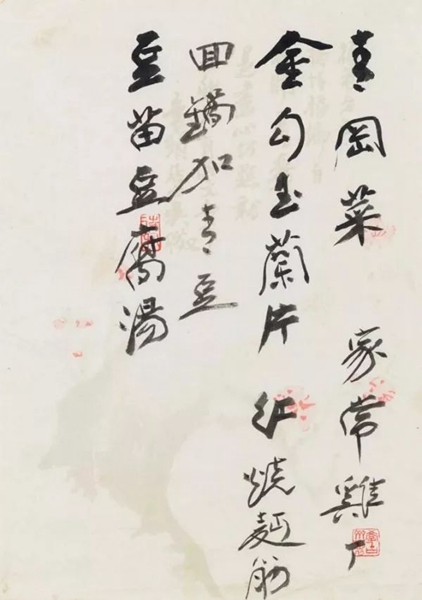 青岡菜 家常雞丁
金勾玉蘭片 紅燒麵筋
回鍋加青豆
豆苗豆腐湯